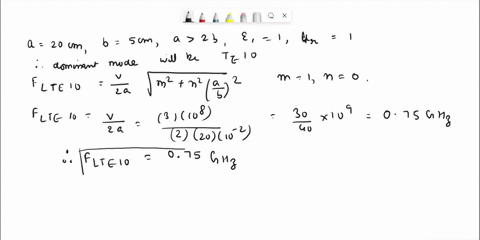 a = 20 cm, b = 5 cm, a > 2b, εr = 1, μr = 1
∴ dominant mode will be TE10
FLTE10 = v/2a √m² + n² (a/b)² m = 1, n = 0.
FLTE10 = v/2a = (3)(10⁸)/(2)(20)(10⁻²) = 30/40 × 10⁹ = 0.75 GHz
∴ FLTE10 = 0.75 GHz